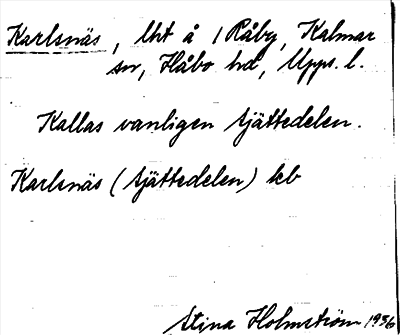 Karlsnäs, lht å 1 Råby, Kalmar
sn, Håbo hd, Upps. l.
Kallas vanligen Sjättedelen.
Karlsnäs (Sjättedelen) kb
Stina Holmström 1936